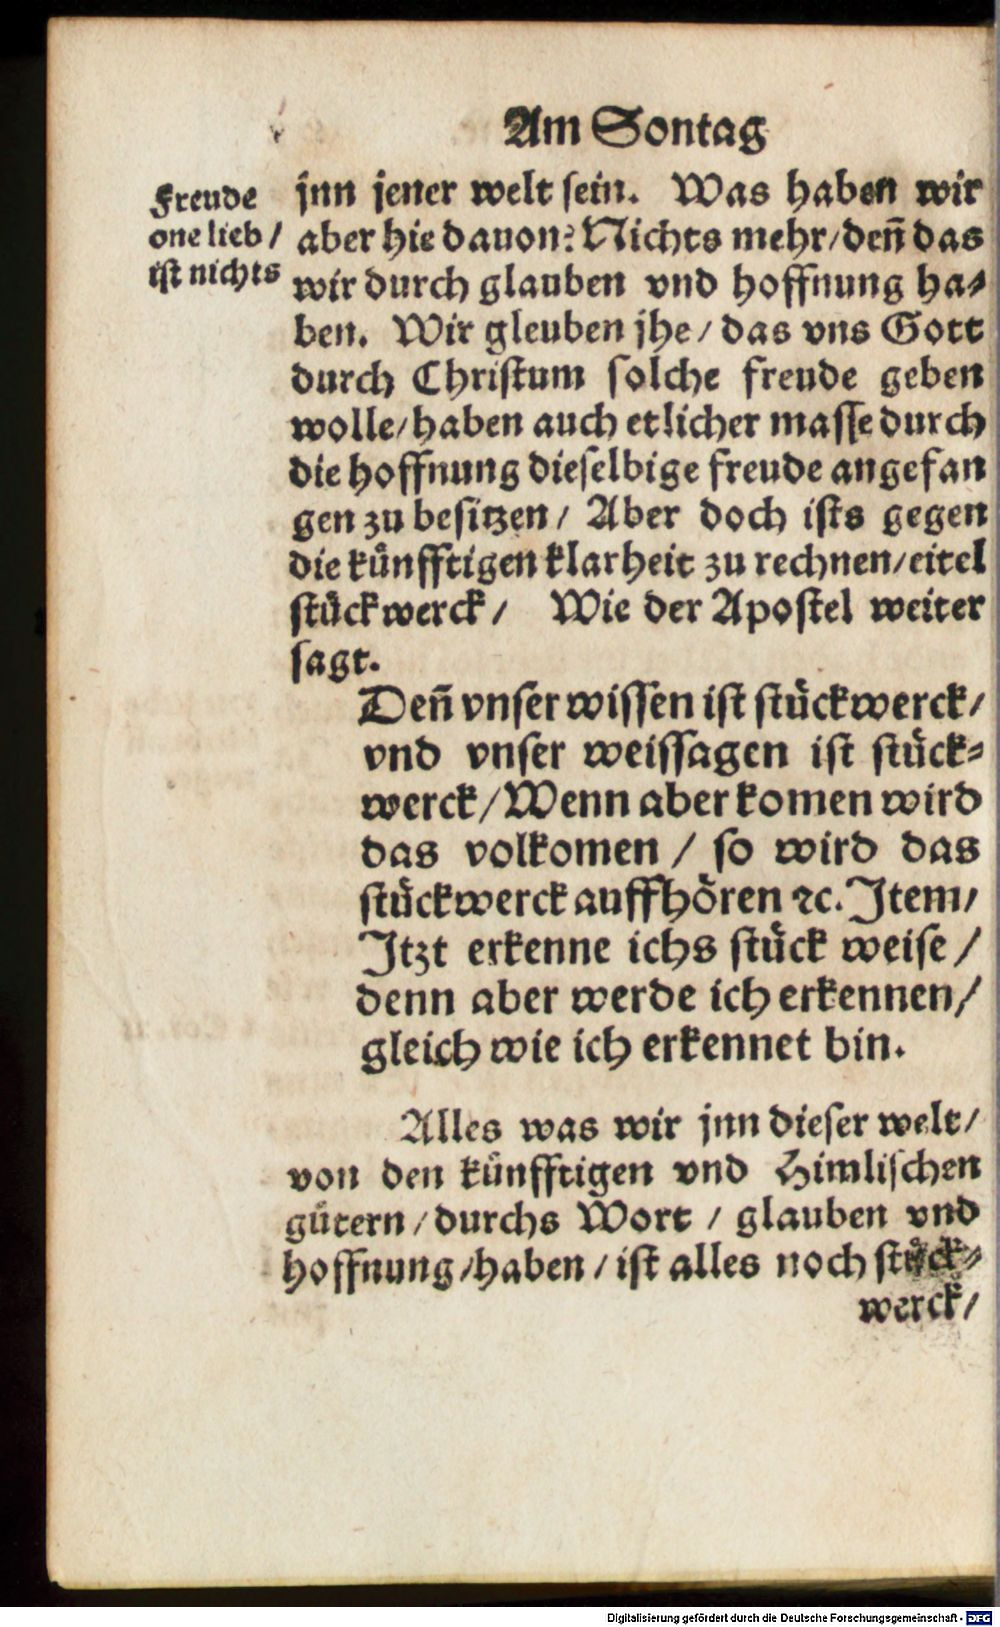 Am Sontag
Freude
one lieb /
ist nichts
jnn jener welt sein. Was haben wir
aber hie dauon? Nichts mehr / deñ das
wir durch glauben vnd hoffnung ha⸗
ben. Wir gleuben jhe / das vns Gott
durch Christum solche freude geben
wolle / haben auch etlicher masse durch
die hoffnung dieselbige freude angefan
gen zu besitzen / Aber doch ists gegen
die künfftigen klarheit zu rechnen / eitel
stückwerck / Wie der Apostel weiter
sagt.
Deñ vnser wissen ist stückwerck /
vnd vnser weissagen ist stück⸗
werck / Wenn aber komen wird
das volkomen / so wird das
stückwerck auffhören ꝛc. Item /
Itzt erkenne ichs stück weise /
denn aber werde ich erkennen /
gleich wie ich erkennet bin.
Alles was wir jnn dieser welt /
von den künfftigen vnd Himlischen
gütern / durchs Wort / glauben vnd
hoffnung / haben / ist alles noch stück⸗
werck /
Digitalisierung gefördert durch die Deutsche Forschungsgemeinschaft - DFG